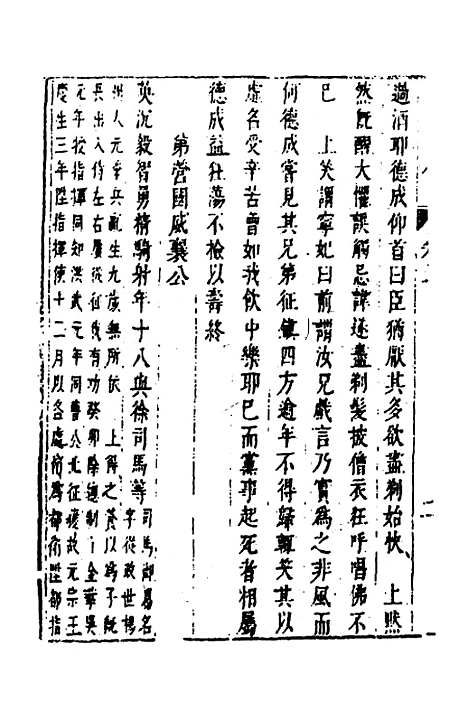 過酒耶德成仰首曰臣猶厭其多欲盡剃始快　上默
然既醒大懼誤觸忌諱遂盡剃髮披僧衣狂呼唱佛不
已　上笑謂寧妃曰前謂汝兄戲言乃實為之非風而
何德成嘗見其兄弟征鎮四方逾年不得歸輒笑其以
虛名受辛苦曾如我飲中樂耶已而黨事起死者相屬
德成益狂蕩不檢以壽終
第營國威襄公
英沉毅智勇精騎射年十八與徐司馬等
司馬即馬名字從政世揚
州人元季兵亂生九歲無所依　上得之養以為子既
長出入侍左右屢從征伐有功癸卯除總制
金華吳
元年授指揮同知洪武元年同曹公北征獲故元宗王
慶生三年陞指揮使十二月以各處衛為都衛陞都指